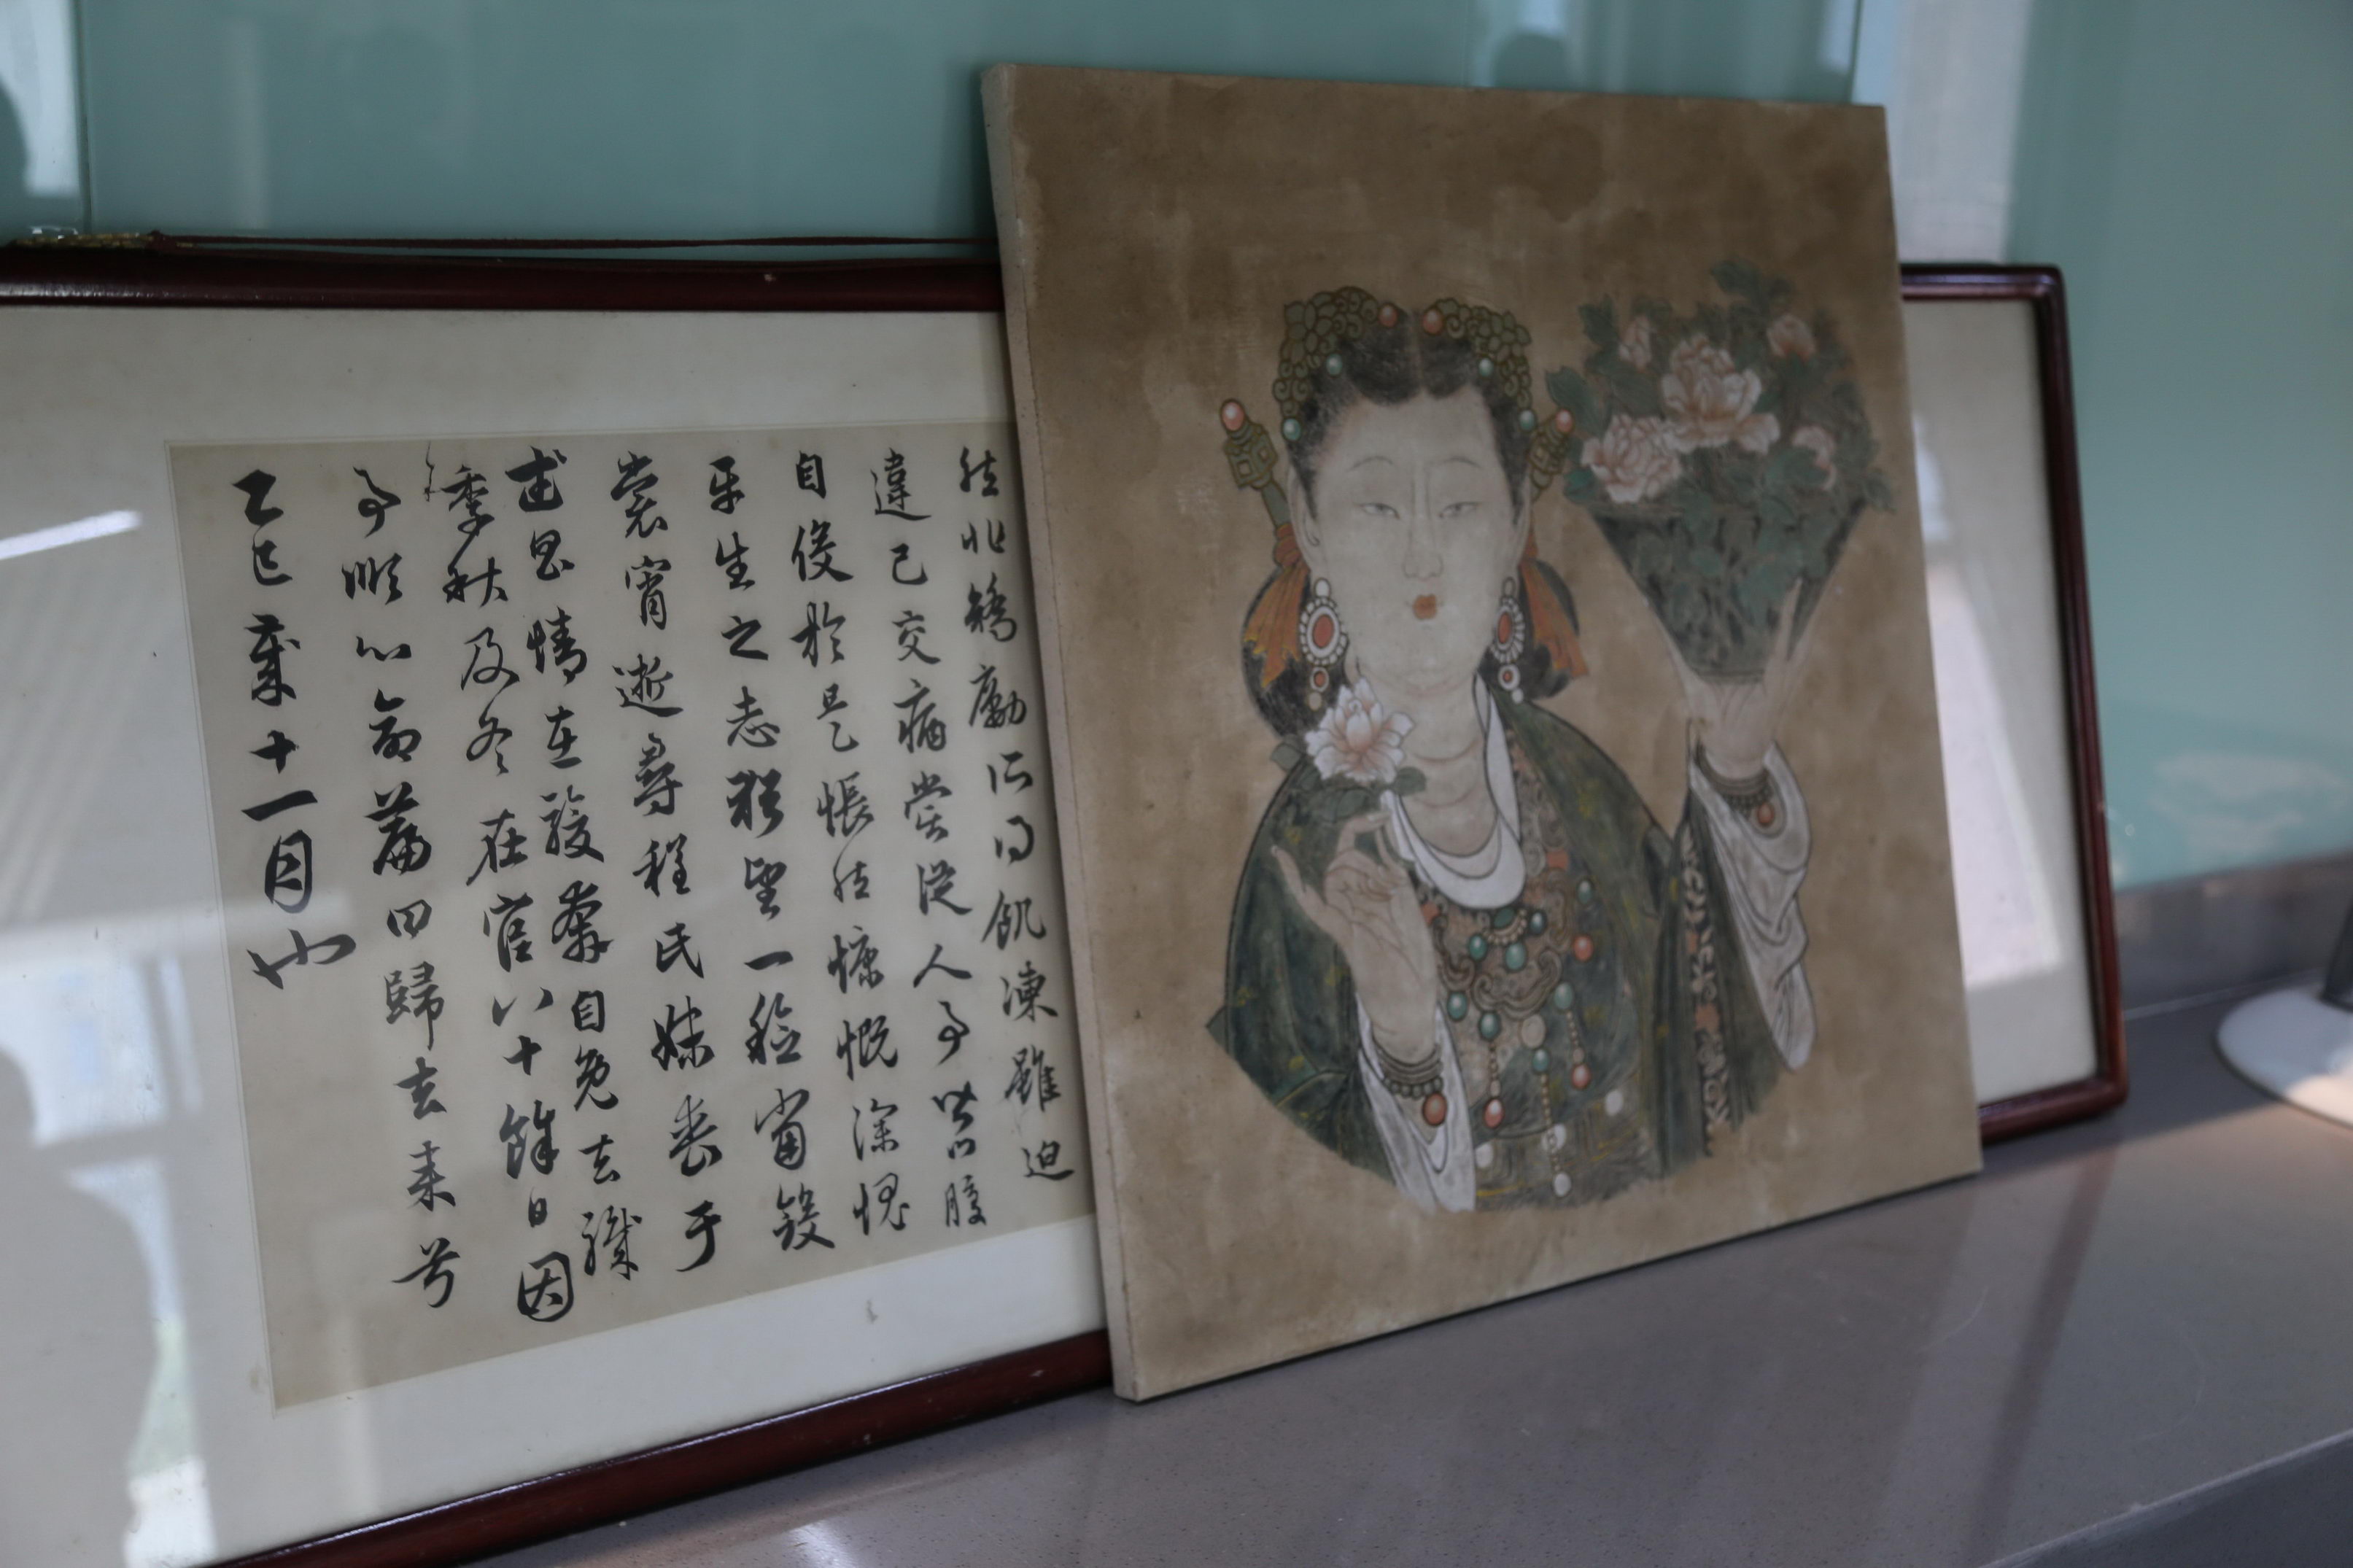 然非矯勵所得飢凍雖迫
違己交病嘗從人事皆口腹
自役於是悵然慷慨深愧
平生之志猶望一稔當斂
裳宵逝尋程氏妹喪于
武昌情在駿奔自免去職
季秋及冬在官八十餘日因
事順心命篇曰歸去來兮
乙巳歲十一月也